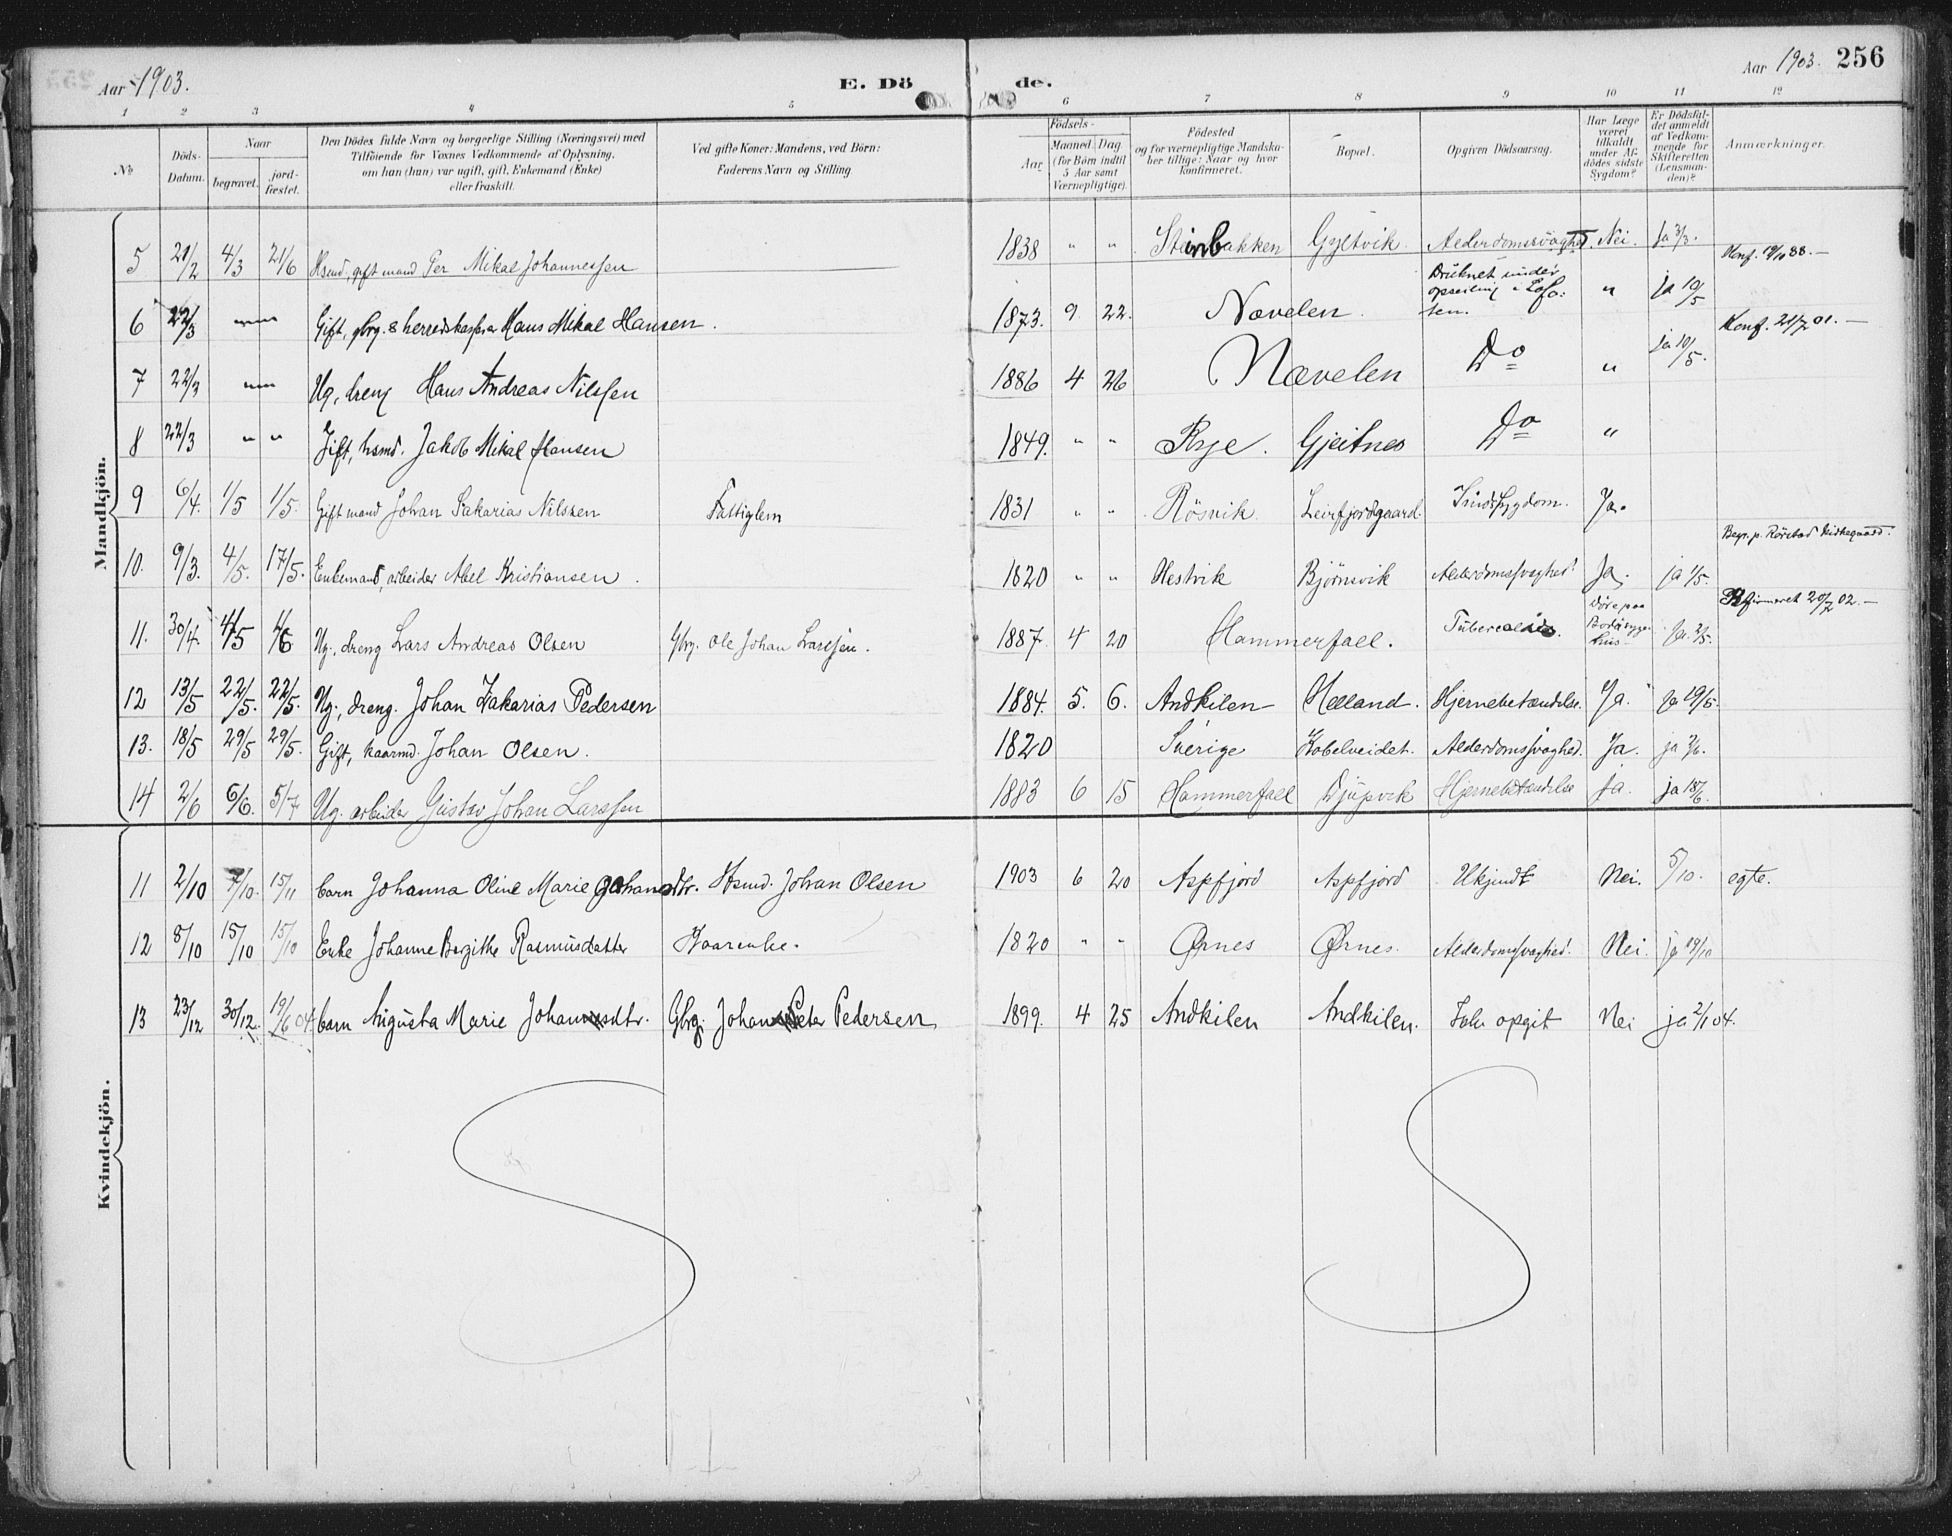 Aar 1903. E. Dö de. Aar 1903. 256
1 2 3 4 5 6 7 8 9 10 11 12
No Döds-Datum. Naar begravet. jord-fæstet. Den Dödes fulde Navn og borgerlige Stilling (Næringsvei) med Tilföiende for Voxnes Vedkommende af Oplysning, om han (hun) var ugift, gift, Enkemand (Enke) eller fraskilt. Ved gifte Koner: Mandens, ved Börn: Faderens Navn og Stilling Födsels- Aar Maaned. Dag (for Börn indtil 5 Aar samt Værnepligtige). Födested og for værnepligtige Mandskaber tillige: Naar og hvor konfirmeret. Bopæl. Opgiven Dödsaarsag. Har Læge været tilkaldt under Afdödes sidste Sygdom? Er Dödsfaldet anmeldt af Vedkommende for Skifteretten (Lensmanden)? Anmærkninger.
Mandkjön.
5 21/2 4/3 21/6 Hsmd, gift mand Per Mikal Johannessen 1838 " " Steinbakken Gyltvik. Alderdomssvaghed. Nei. ja 3/3.
6 22/3 " " Gift, gbrg. & herredskasserer Hans Mikal Hansen. 1873. 9 22. Nævelen. Druknet under opseiling i Lofoten. " ja 10/5 Konf. 19/10 88. —
7 22/3 " " Ug., dreng Hans Andreas Nilssen 1886 4 26 Nævelen Do " ja 10/5. Konf. 21/7 01. —
8 22/3 " " Gift, hsmd. Jakob Mikal Hansen 1849. " " Rye. Gjeitnes Do "
9 6/4. 1/5 1/5. Gift mand Johan Sakarias Nilssen Fattiglem 1831 " " Rösvik Leirfjordgaard. Sindssygdom. Ja.
10. 9/3. 4/5. 17/5. Enkemand, arbeider Abel Kristiansen. 1820 " " Hestvik Bjørnsvik Alderdomssvaghed. Ja. ja 1/5. Begr. p. Rörstad Kirkegaard.
11. 30/4. 4/5 1/6 Ug., dreng Lars Andreas Olsen Gbrg. Ole Johan Larssen. 1887. 4 20 Hammerfall. Tuberculose. Døde paa Bodø sygehus ja 2/5. Konfirmeret 20/7 02. —
12 13/5 22/5. 22/5. Ug., dreng. Johan Zakarias Pedersen 1884. 5. 6. Andkilen Helland. Hjernebetændelse. Ja. ja 19/5.
13. 18/5 29/5 29/5. Gift, kaarmd. Johan Olsen. 1820 Sverige Kobelveidet. Alderdomssvaghed. Ja. ja 2/6.
14 2/6 6/6. 5/7 Ug. arbeider Gustav Johan Larssen 1883 6 15 Hammerfall Djupvik Hjernebetændelse ja. ja 18/6.
Kvindekjön.
11 2/10 7/10. 15/11 barn Johanna Oline Marie Johansdtr. Hsmd. Johan Olsen 1903 6 20 Aspfjord Aspfjord Ukjendt Nei. 5/10. egte.
12 8/10 15/10 15/10 Enke Johanne Bergithe Rasmusdatter Kaarenke. 1820 " " Ørnes Ørnes. Alderdomssvaghed. Nei. ja 19/10
13 23/12 30/12. 19/6 04. barn Augusta Marie Johansdtr. Gbrg. Johan Peter Pedersen 1899. 4 25 Andkilen Andkilen. Ikke opgit Nei ja 2/1 04.